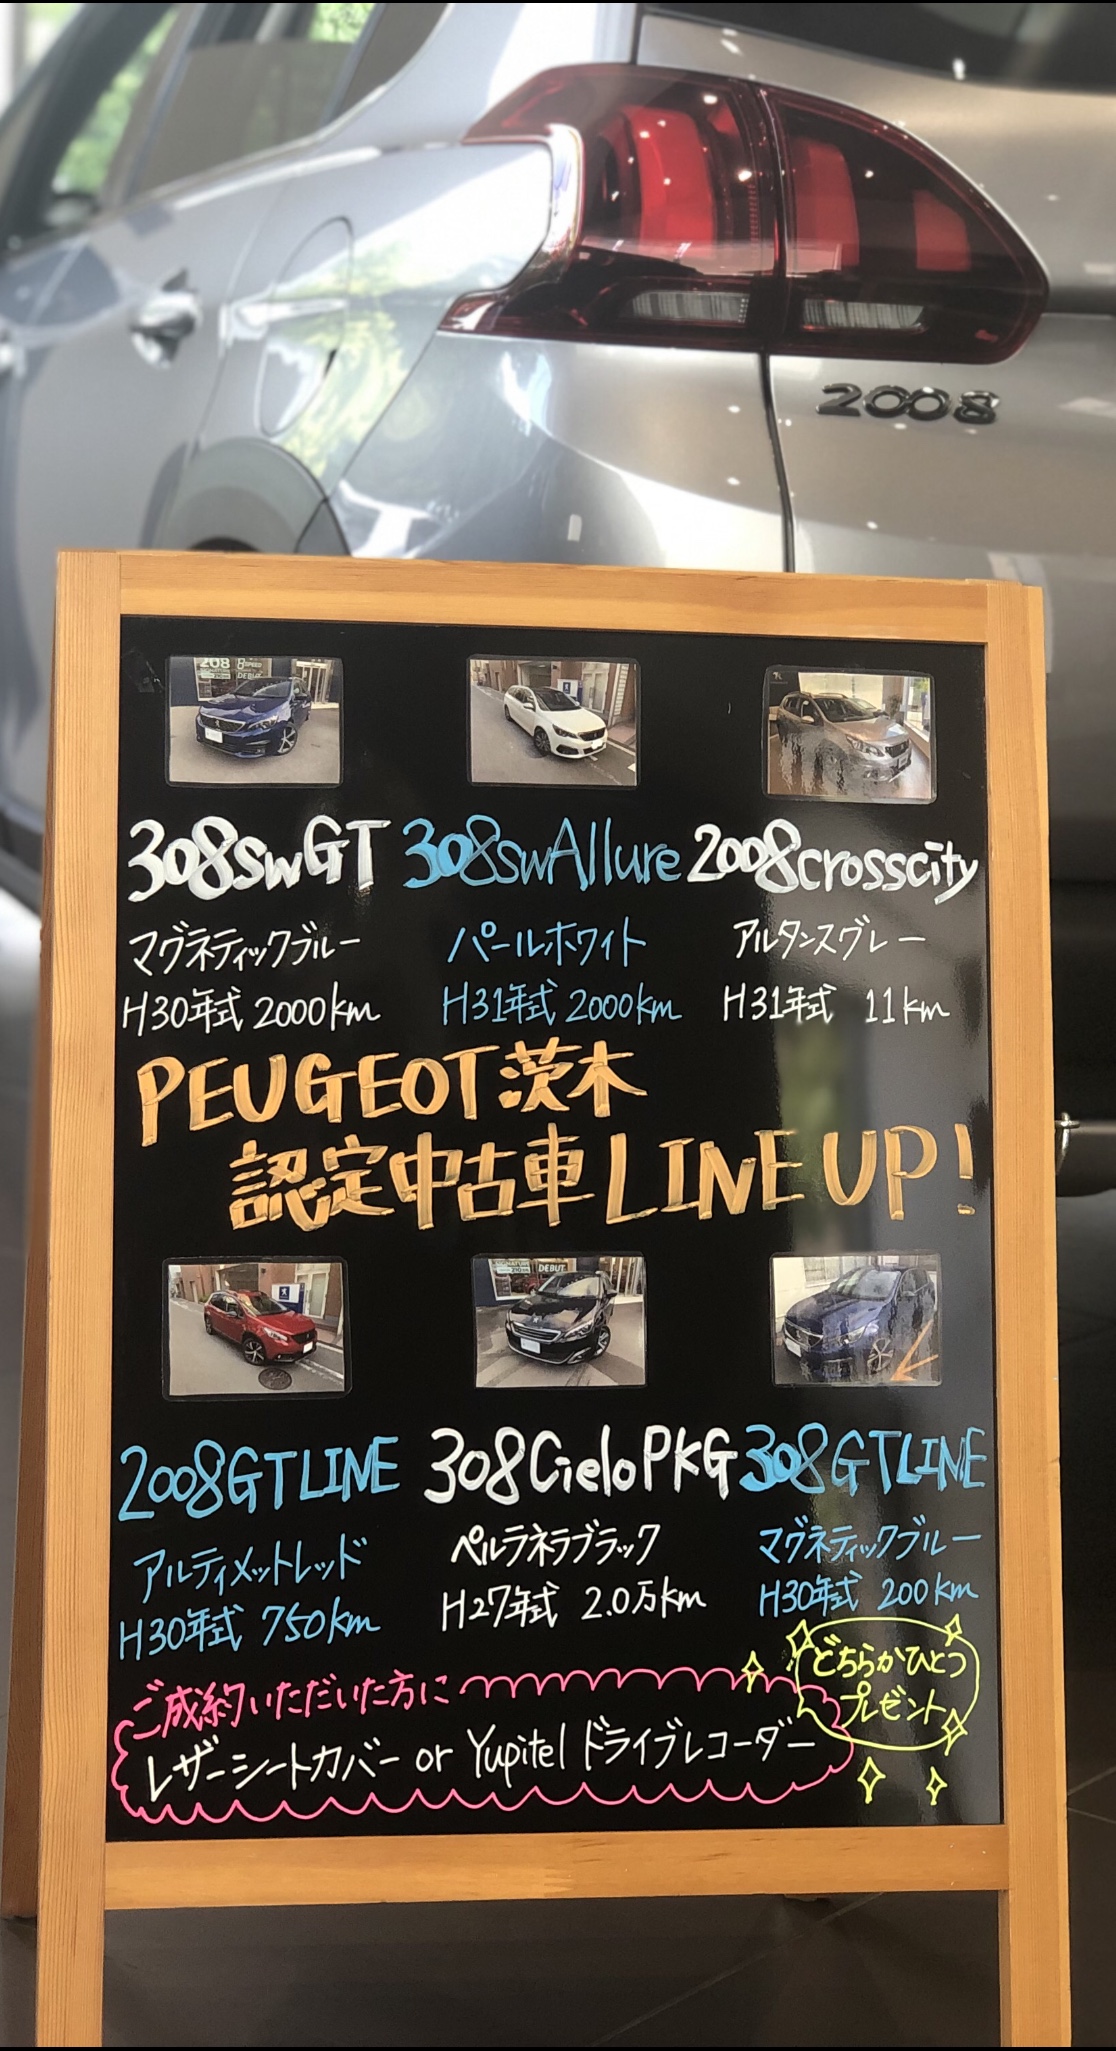 2008
308swGT
マグネティックブルー
H30年式 2000km
308swAllure
パールホワイト
H31年式 2000km
2008crosscity
アルタンスグレー
H31年式 11km
PEUGEOT茨木
認定中古車LINE UP!
2008GTLINE
アルティメットレッド
H30年式 750km
308CieloPKG
ペルラネラブラック
H27年式 2.0万km
308GTLINE
マグネティックブルー
H30年式 200km
ご成約いただいた方に
レザーシートカバー or Yupitel ドライブレコーダー
どちらかひとつ
プレゼント
208
DEBUT
DEBUT